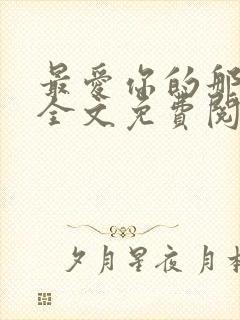 最爱你的那
全文免費閱
夕月星夜月